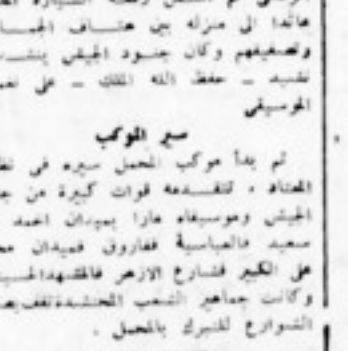 عائدا الى منزله بين هتاف
وتصفيقهم وكان جنود الجيش
نشيد ـ حفظ الله الملك ـ على
الموسيقى
سير الموكب
ثم بدأ موكب المحمل سيره فى
المعتاد ، تتقدمه قوات كبيرة من
الجيش وموسيقاه مارا بميدان احمد
سعيد فالعباسية ففاروق فميدان
على الكبير فشارع الازهر
وكانت جماهير الشعب المحتشدة تقف
الشوارع للتبرك بالمحمل .